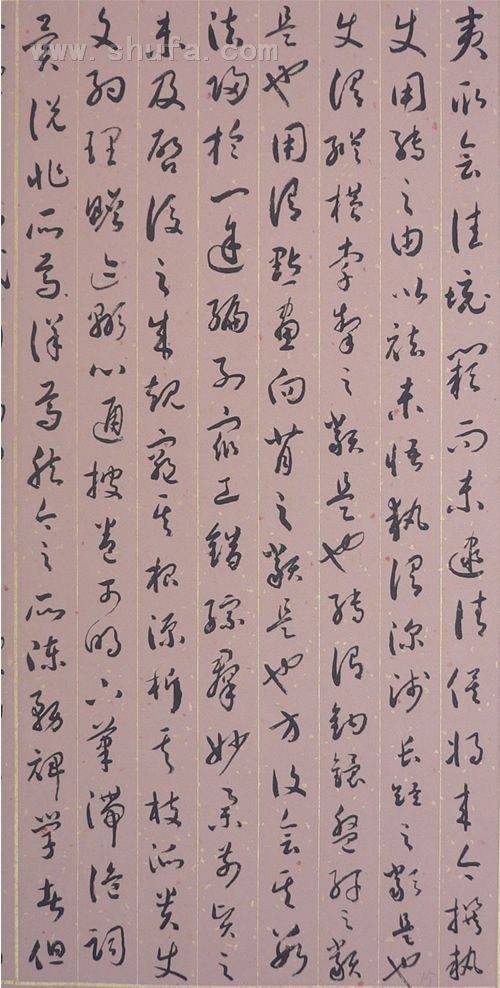 夷取會佳境闕而未逮請俟將來今撰執
使用轉之由以祛未悟執謂深淺長短之類是也
使謂縱橫牽掣之類是也轉謂鈎鐶盤紆之類
是也用謂點畫向背之類是也方復會其數
法歸於一途編列衆工錯綜羣妙舉前賢之
未及啓後之成規窺其根源析其枝派貴使
文約理贍迹顯心通披卷可明下筆滯詭詞
異説非所焉詳焉然今之所陳務裨學者但
www.shufa.com